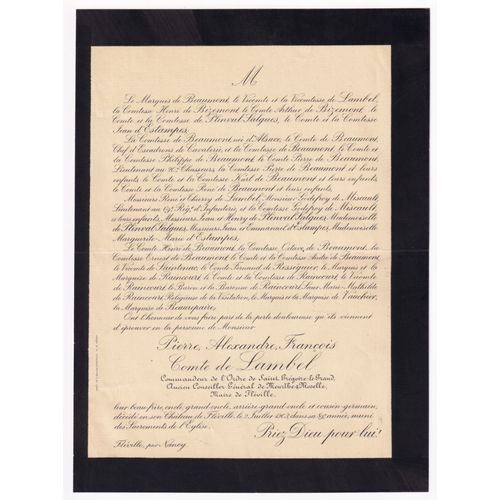 M
Le Marquis de Beaumont, le Vicomte et la Vicomtesse de Lambel,
la Comtesse Henri de Bizemont, le Comte Arthur de Bizemont, le
Comte et la Comtesse de Plinval Salgues, le Comte et la Comtesse
Jean d'Estampes,
La Comtesse de Beaumont, née d'Alsace, le Comte de Beaumont,
Chef d'Escadrons de Cavalerie et la Comtesse de Beaumont, le Comte et
la Comtesse Philippe de Beaumont, le Comte Pierre de Beaumont,
Lieutenant au Chasseurs, la Comtesse Pierre de Beaumont et leurs
enfants, le Comte et la Comtesse Karl de Beaumont et leurs enfants,
le Comte et la Comtesse René de Beaumont et leurs enfants,
Messieurs René et Thierry de Lambel, Monsieur Godefroy de Miscault,
Lieutenant au Rég.t d'Infanterie, et la Comtesse Godefroy de Miscault
et leurs enfants, Messieurs Jean et Henry de Plinval Salgues, Mademoiselle
de Plinval Salgues, Messieurs Jean et Emmanuel d'Estampes, Mademoiselle
Marguerite-Marie d'Estampes,
Le Comte Henri de Beaumont, la Comtesse Octave de Beaumont, la
Comtesse Ernest de Beaumont, le Comte et la Comtesse André de Beaumont,
le Vicomte de Saintenac, le Comte Fernand de Rességuier, le Marquis et la
Marquise de Raincourt, le Comte et la Comtesse de Raincourt, le Vicomte
de Raincourt, le Baron et la Baronne de Raincourt, Sœur Marie-Mathilde
de Raincourt, Religieuse de la Visitation, le Marquis et la Marquise de Vaulchier,
la Marquise de Beaurepaire,
Ont l'honneur de vous faire part de la perte douloureuse qu'ils viennent
d'éprouver en la personne de Monsieur
Pierre, Alexandre, François
Comte de Lambel
Commandeur de l'Ordre de Saint Grégoire-le-Grand,
Ancien Conseiller Général de Meurthe & Moselle,
Maire de Fléville,
leur beau-frère, oncle, grand-oncle, arrière grand-oncle et cousin-germain,
décédé en son Château de Fléville, le 2 Juillet 1903, dans sa année, muni
des Sacrements de l'Église.
Priez Dieu pour lui!
Fléville, par Nancy.